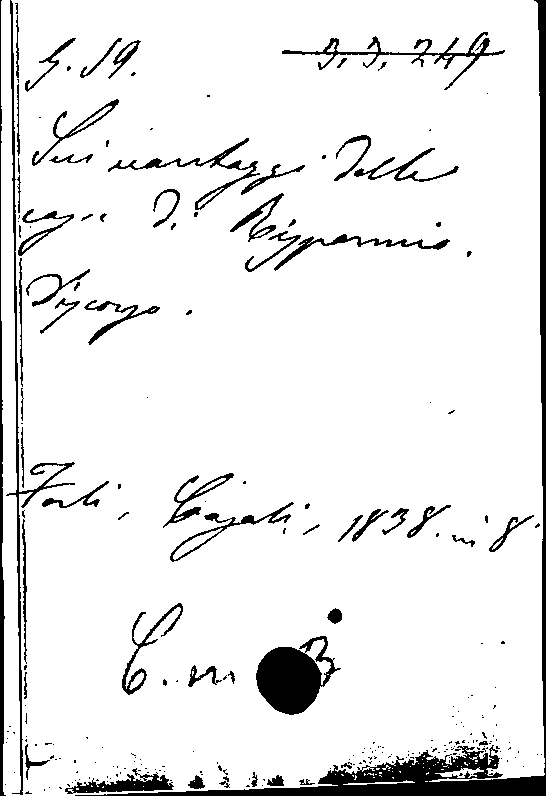 G. 59. 3. 3. 249
Sui vantaggi delle
casse di Risparmio.
Discorso.
Forlì, Casali, 1838. in 8.
C. m